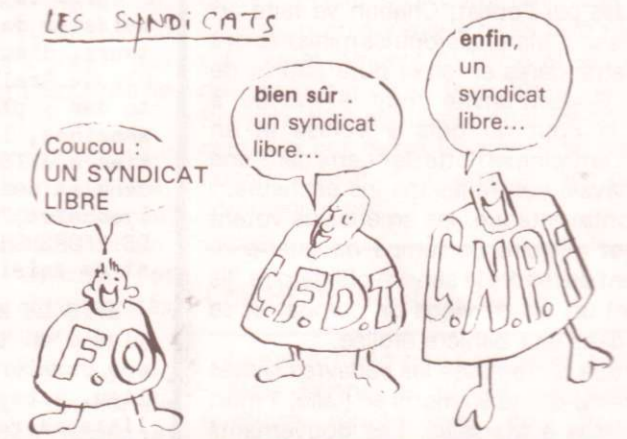 LES SYNDICATS
Coucou :
UN SYNDICAT
LIBRE
bien sûr .
un syndicat
libre...
enfin,
un
syndicat
libre...
F.O
C.F.D.T
C.N.P.F